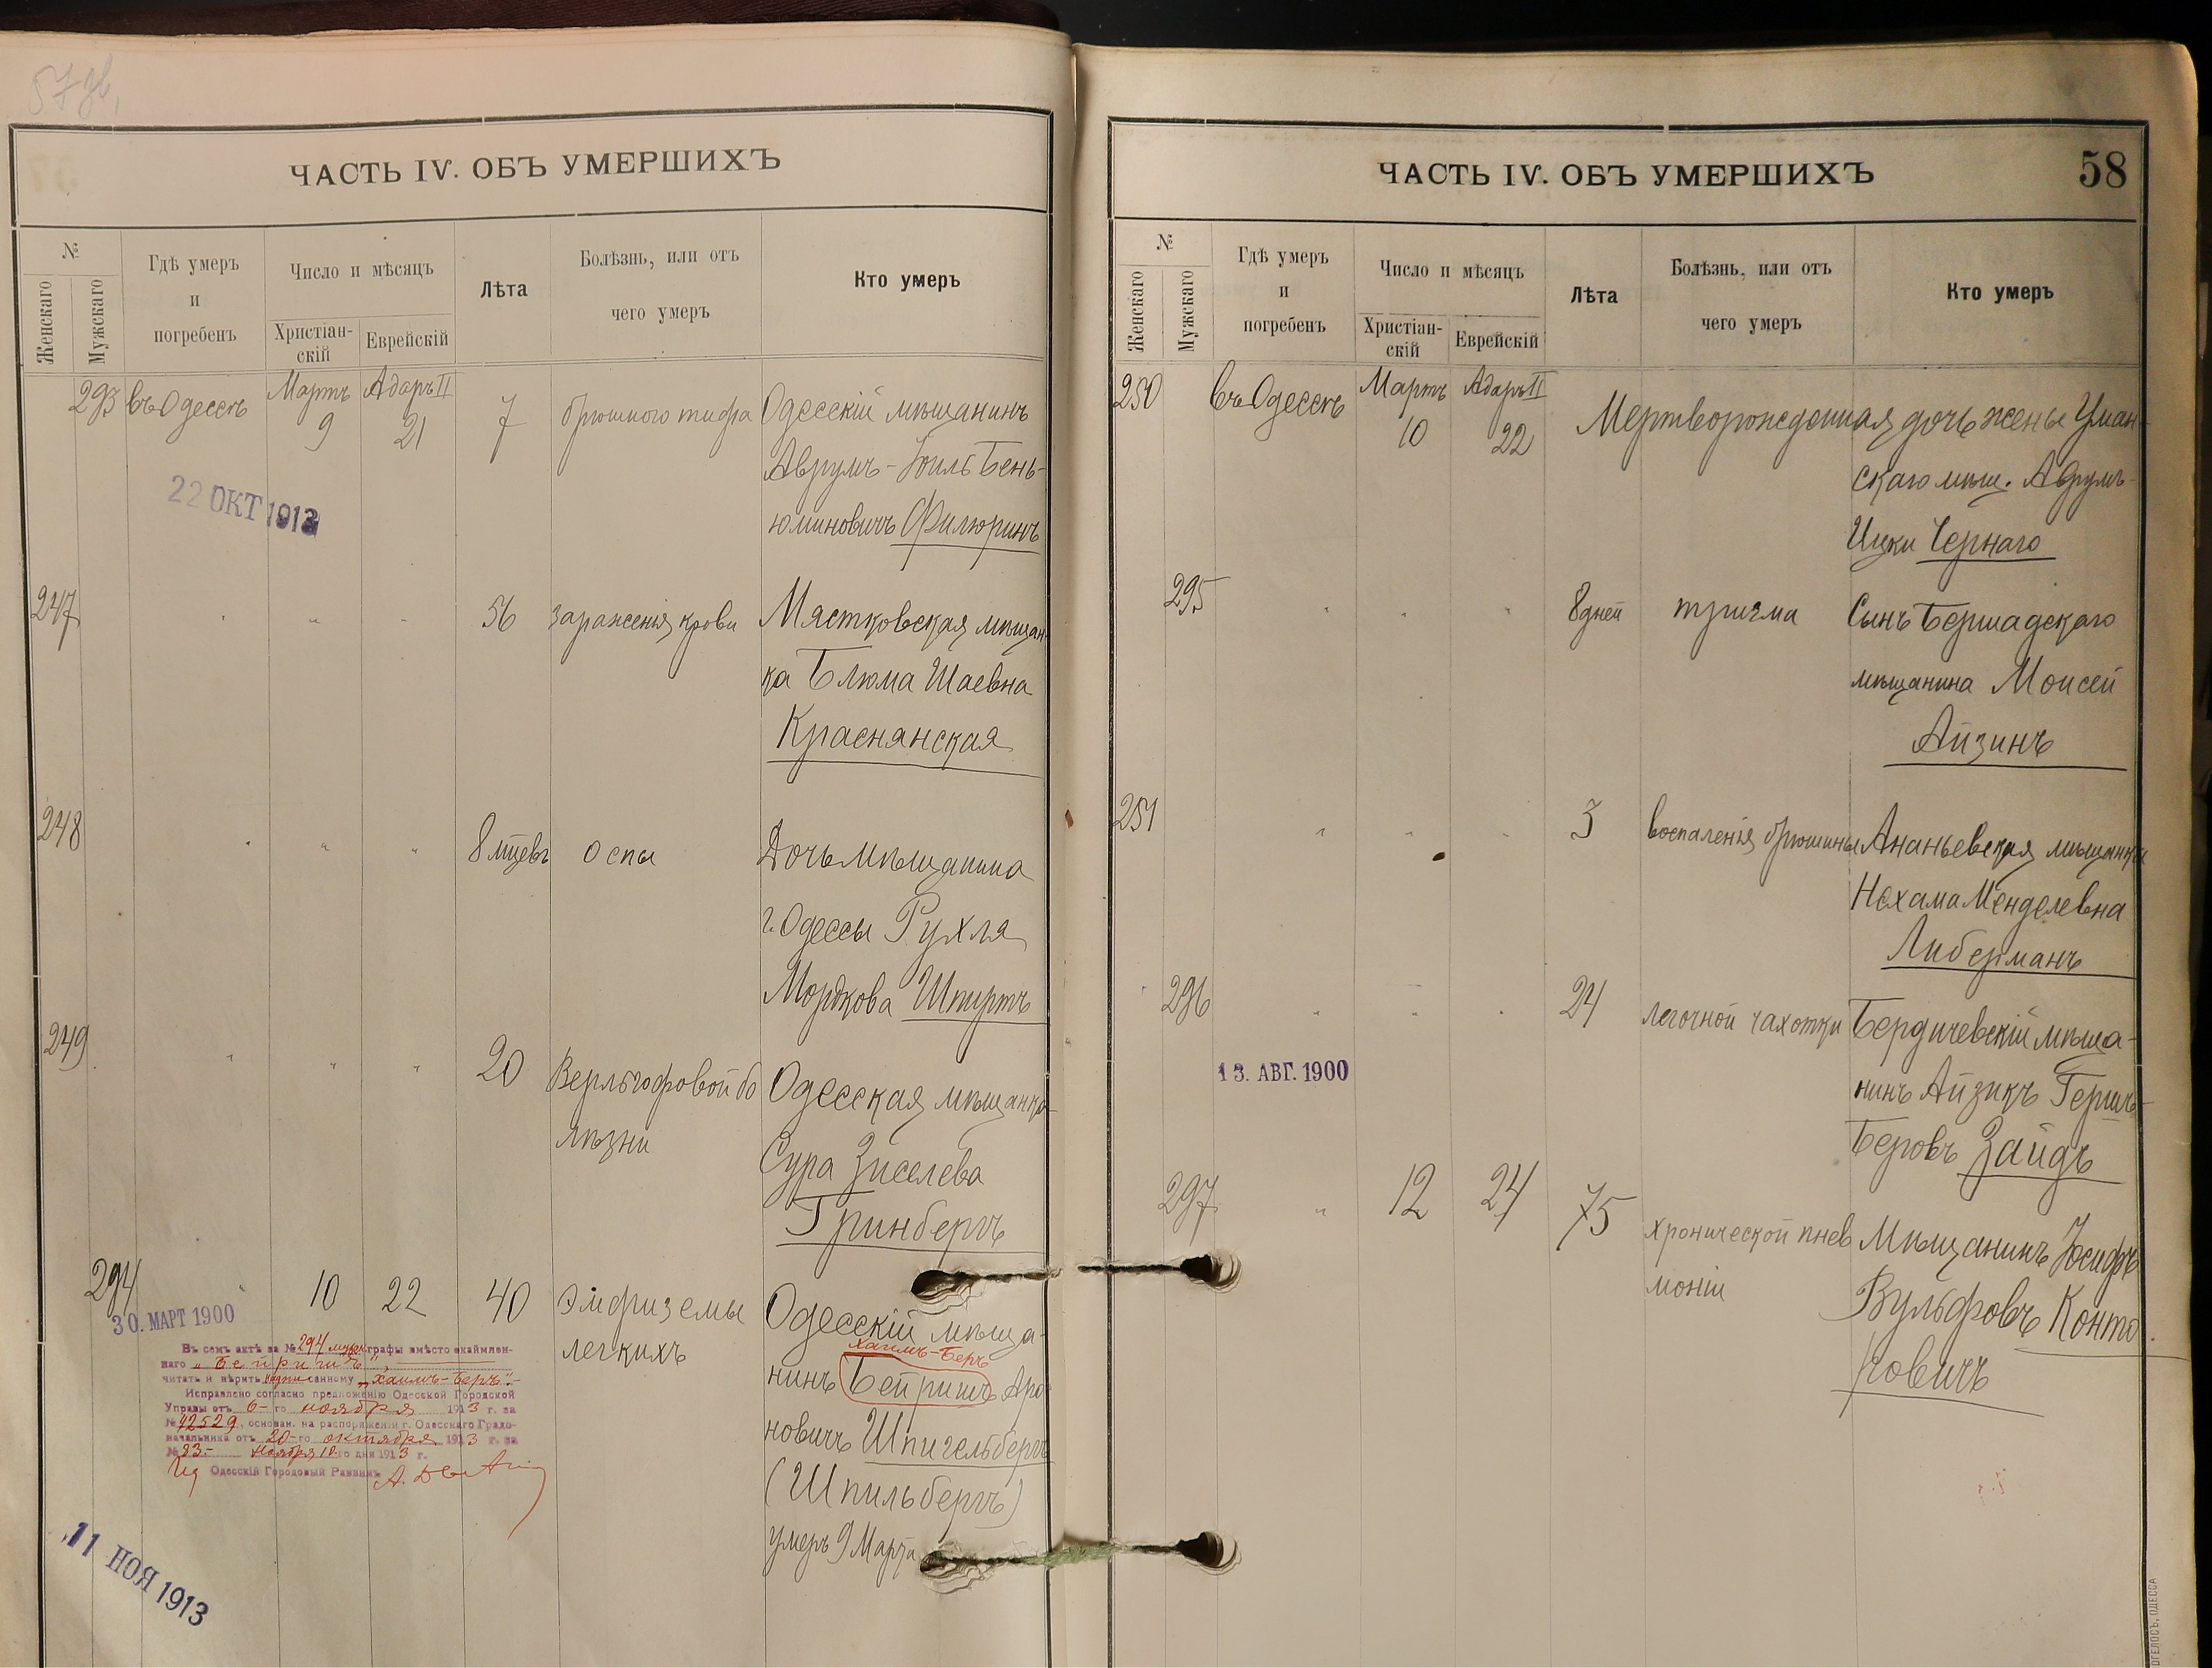 57 об.
ЧАСТЬ IV. ОБЪ УМЕРШИХЪ
№
Женскаго
Мужскаго
Гдѣ умеръ
и
погребенъ
Число и мѣсяцъ
Христіан-
скій
Еврейскій
Лѣта
Болѣзнь, или отъ
чего умеръ
Кто умеръ
293 въ Одессѣ Мартъ 9 Адаръ II 21 7 брюшного тифа Одесскій мѣщанинъ
Аврумъ-Іоиль Бень-
юминовичъ Филюринъ
22 ОКТ 1913
247 " " " 56 зараженія крови Мястковская мѣщан-
ка Блюма Шаевна
Краснянская
248 " " " 8 мѣцевъ оспы Дочь мѣщанина
г. Одессы Рухля
Мордкова Шпиртъ
249 " " " 20 Верльгофовой бо Одесская мѣщанка
лѣзни
Сура Зиселева
Гринбергъ
294 " 10 22 40 Эмфиземы Одесскій мѣща-
легкихъ
Хаимъ-Беръ
нинъ Бейришъ Аро-
новичъ Шпигельбергъ
(Шпильбергъ)
умеръ 9 Марта
30. МАРТ 1900
Въ семъ актѣ за № 294 мужск графы вмѣсто окаймлен-
наго "Бейришъ",
читать и вѣрить надписанному "Хаимъ-Беръ".-
Исправлено согласно предложенію Одесской Городской
Управы отъ 6-го ноября 1913 г. за
№ 42529, основан. на распоряженіи г. Одесскаго Градо-
начальника отъ 20-го октября 1913 г. за
№ 83.- Ноября 10-го дня 1913 г.
Одесскій Городовый Раввинъ
11 НОЯ 1913
ЧАСТЬ IV. ОБЪ УМЕРШИХЪ
58
№
Женскаго
Мужскаго
Гдѣ умеръ
и
погребенъ
Число и мѣсяцъ
Христіан-
скій
Еврейскій
Лѣта
Болѣзнь, или отъ
чего умеръ
Кто умеръ
250 въ Одессѣ Мартъ 10 Адаръ II 22 Мертворожденная дочь жены Уман-
скаго мѣщ. Аврумъ-
Ицки Чернаго
295 " " " 8 дней тризма Сынъ Бершадскаго
мѣщанина Моисей
Айзинъ
251 " " " 3 воспаленія брюшины Ананьевская мѣщанка
Нехама Менделевна
Либерманъ
296 " " " 24 легочной чахотки Бердичевскій мѣща-
нинъ Айзикъ Гершъ-
Беровъ Зайдъ
13. АВГ. 1900
297 " 12 24 75 хронической пнев Мѣщанинъ Іосифъ
моніи
Вульфовъ Конто
ровичъ